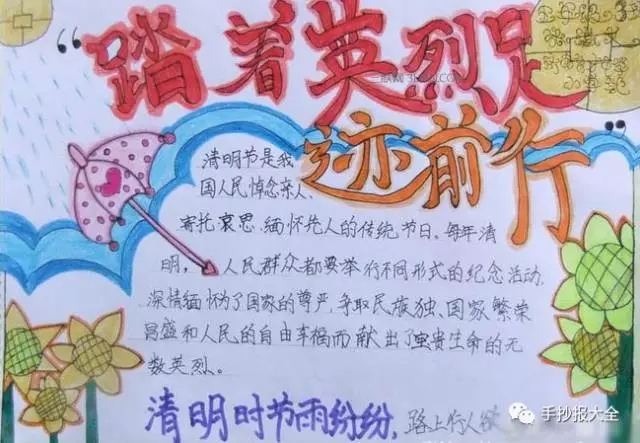 “踏着英烈足
迹前行”
清明节是我
国人民悼念亲人、
寄托哀思、缅怀先人的传统节日。每年清
明,人民群众都要举行不同形式的纪念活动,
深情缅怀为了国家的尊严,争取民族独、国家繁荣
昌盛和人民的自由幸福而献出了宝贵生命的无
数英烈。
清明时节雨纷纷,路上行人欲
手抄报大全